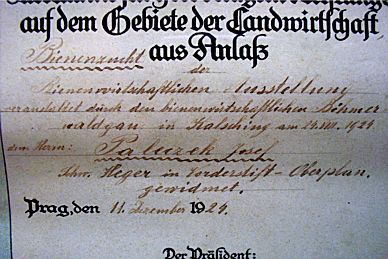 auf dem Gebiete der Landwirtschaft
aus Anlaß
Bienenzucht
der
Bienenwirtschaftlichen Ausstellung
veranstaltet durch den bienenwirtschaftlichen Böhmer
waldgau in Kalsching am 24.VIII. 1924
dem Herrn: Paleczek Josef
Schw. Heger in Vorderstift - Oberplan.
gewidmet.
Prag, den 11. Dezember 1924.
Der Präsident: